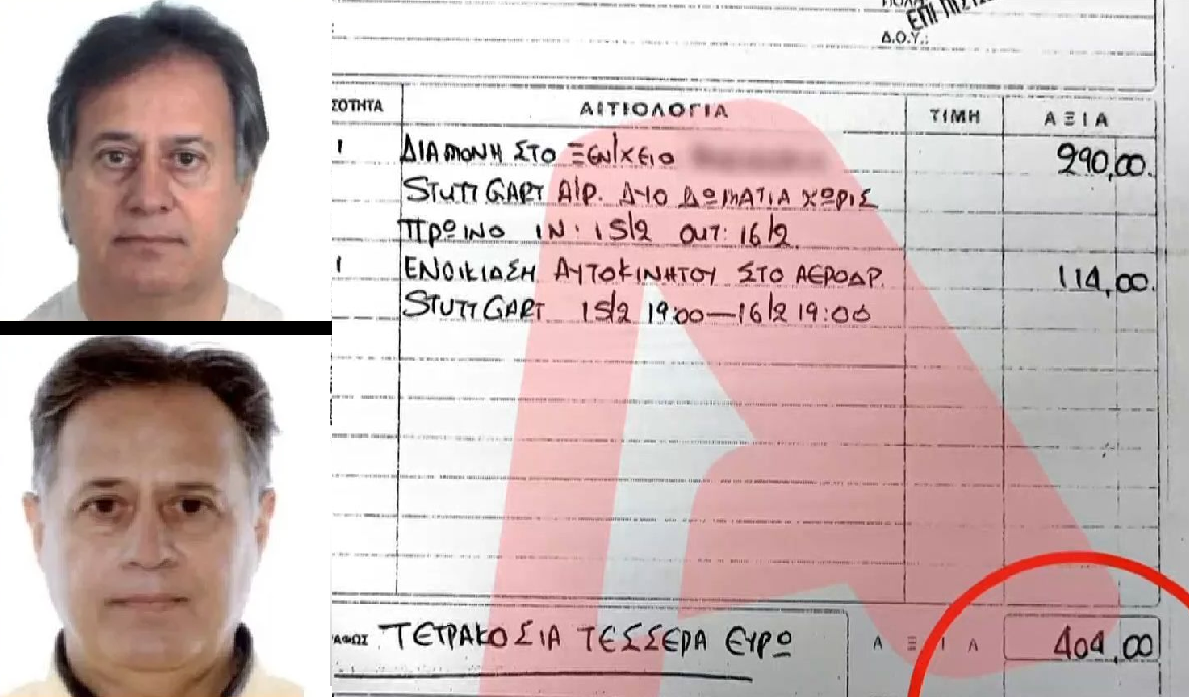 ΕΠΙ ΠΙΣΤ
Δ.Ο.Υ.:
ΣΟΤΗΤΑ ΑΙΤΙΟΛΟΓΙΑ ΤΙΜΗ ΑΞΙΑ
1 ΔΙΑΜΟΝΗ ΣΤΟ ΞΕΝ/ΧΕΙΟ 290,00.
STUTTGART AIR. ΔΥΟ ΔΩΜΑΤΙΑ ΧΩΡΙΣ
ΠΡΩΙΝΟ IN: 15/2 OUT: 16/2.
1 ΕΝΟΙΚΙΑΣΗ ΑΥΤΟΚΙΝΗΤΟΥ ΣΤΟ ΑΕΡΟΔΡ. 114,00.
STUTTGART 15/2 19:00—16/2 19:00
ΤΕΤΡΑΚΟΣΙΑ ΤΕΣΣΕΡΑ ΕΥΡΩ ΑΞΙΑ 404,00